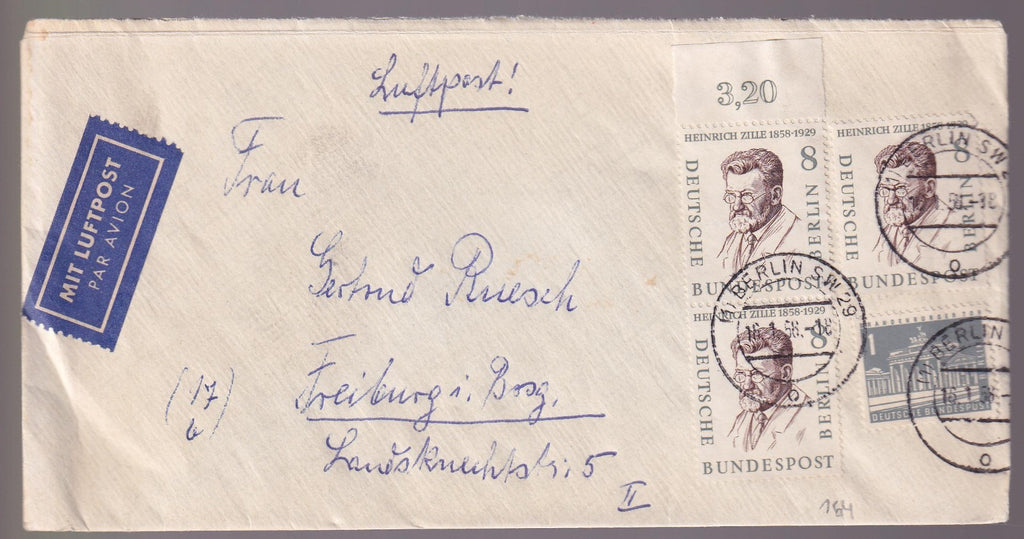 Luftpost!
Frau
Gertrud Ruesch
(17
b)
Freiburg i. Brsg.
Landsknechtstr. 5
II
MIT LUFTPOST
PAR AVION
3,20
HEINRICH ZILLE 1858-1929
8
DEUTSCHE
BERLIN
BUNDESPOST
HEINRICH ZILLE 1858-1929
8
DEUTSCHE
BERLIN
BUNDESPOST
HEINRICH ZILLE 1858-1929
8
DEUTSCHE
BERLIN
BUNDESPOST
1
BRANDENBURGER
DEUTSCHE BUNDESPOST
BERLIN SW
BERLIN SW 29
16.1.58.-18
BERLIN
164